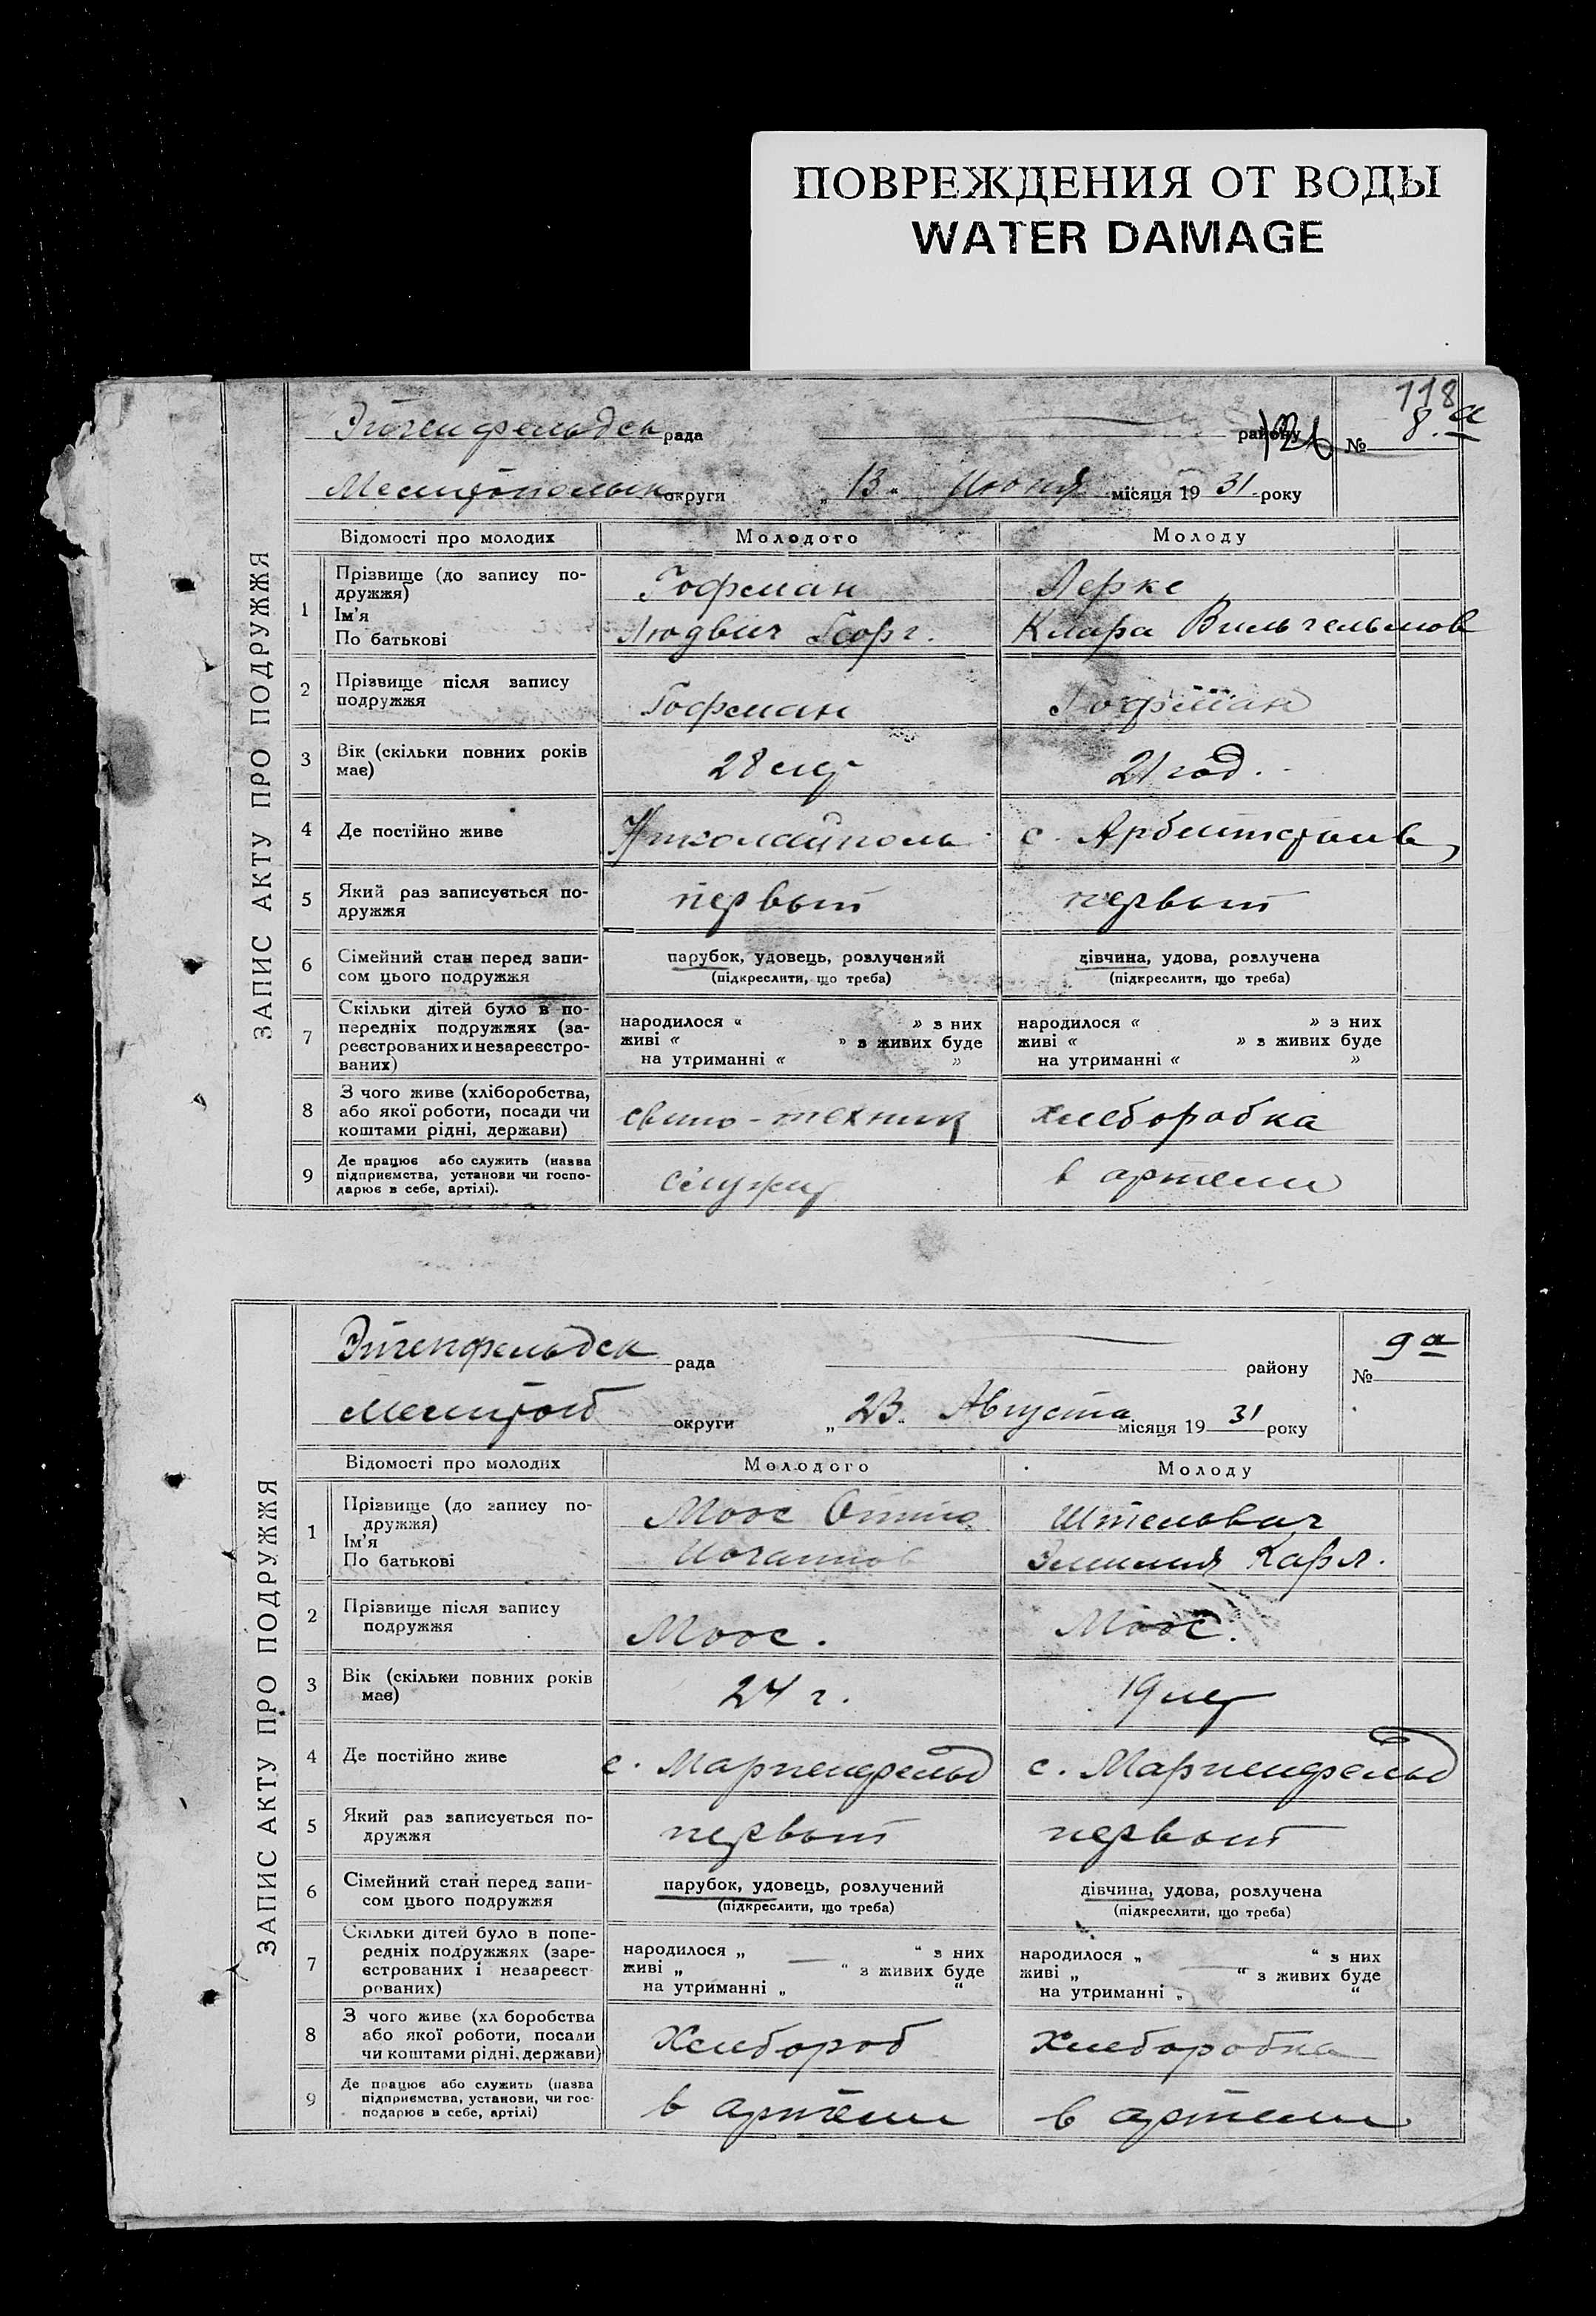 ПОВРЕЖДЕНИЯ ОТ ВОДЫ
WATER DAMAGE
118
ЗАПИС АКТУ ПРО ПОДРУЖЖЯ
Эйгенфельдск рада району 126 № 8.а
Мелитопольск округи „13“ Июня місяця 1931 року
Відомості про молодих Молодого Молоду
1 Прізвище (до запису по-
дружжя)
Ім'я
По батькові
Гофман Лерке
Людвиг Георг. Клара Вильгельмов
2 Прізвище після запису
подружжя
Гофман Гофман
3 Вік (скільки повних років
має)
28 лет 21 год.
4 Де постійно живе Николайполь с. Арбейтсгейм
5 Який раз записується по-
дружжя
первый первый
6 Сімейний стан перед запи-
сом цього подружжя
парубок, удовець, розлучений
(підкреслити, що треба)
дівчина, удова, розлучена
(підкреслити, що треба)
7 Скільки дітей було в по-
передніх подружжях (за-
реєстрованих и незареєстро-
ваних)
народилося « » з них
живі « » з живих буде
на утриманні « »
народилося « » з них
живі « » з живих буде
на утриманні « »
8 З чого живе (хліборобства,
або якої роботи, посади чи
коштами рідні, держави)
свино-техник хлеборобка
9 Де працює або служить (назва
підприємства, установи чи госпо-
дарює в себе, артілі).
служит в артели
ЗАПИС АКТУ ПРО ПОДРУЖЖЯ
Эйгенфельдск рада району № 9а
Мелитоп округи „23“ Августа місяця 1931 року
Відомості про молодих Молодого Молоду
1 Прізвище (до запису по-
дружжя)
Ім'я
По батькові
Моос Отто
Иоганнов
Эмилия Карл.
2 Прізвище після запису
подружжя
Моос. Моос.
3 Вік (скільки повних років
має)
24 г. 19 лет
4 Де постійно живе с. Мариенфельд с. Мариенфельд
5 Який раз записується по-
дружжя
первый первый
6 Сімейний стан перед запи-
сом цього подружжя
парубок, удовець, розлучений
(підкреслити, що треба)
дівчина, удова, розлучена
(підкреслити, що треба)
7 Скільки дітей було в попе-
редніх подружжях (заре-
єстрованих і незареєст-
рованих)
народилося „ — “ з них
живі „ “ з живих буде
на утриманні „ “
народилося „ — “ з них
живі „ “ з живих буде
на утриманні „ “
8 З чого живе (хл боробства
або якої роботи, посади
чи коштами рідні, держави)
Хлебороб Хлеборобка
9 Де працює або служить (назва
підприємства, установи, чи гос-
подарює в себе, артілі)
в артели в артели